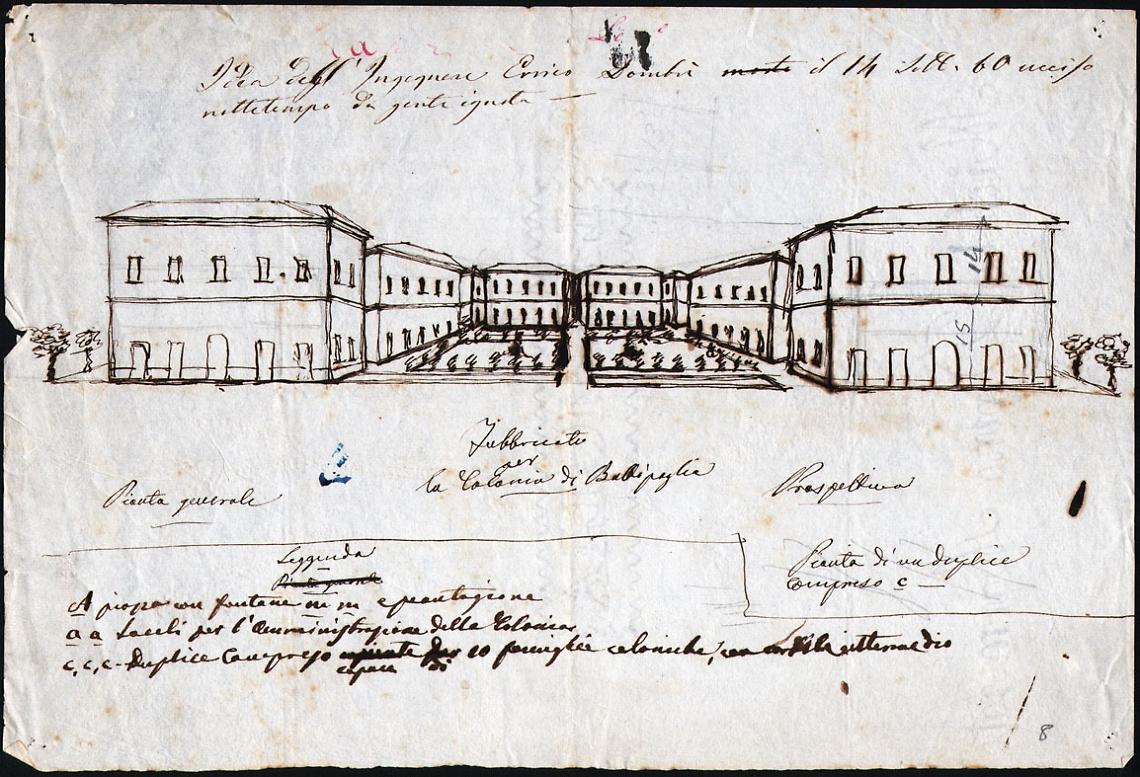 Idea dell'Ingegnere Errico Dombrè morto il 14 Sett. 60 ucciso
nottetempo da gente ignota —
Fabbricato
per
la Colonia di Battipaglia
Pianta generale
Prospettiva
Leggenda
Pianta generale
Pianta di un duplice
Compreso c —
A piazza con fontane m m e piantagione
a a Locali per l'Amministrazione della Colonia
c, c, c - duplice Compreso 10 famiglie coloniche, con cortile intermedio
capace di
14
15
8